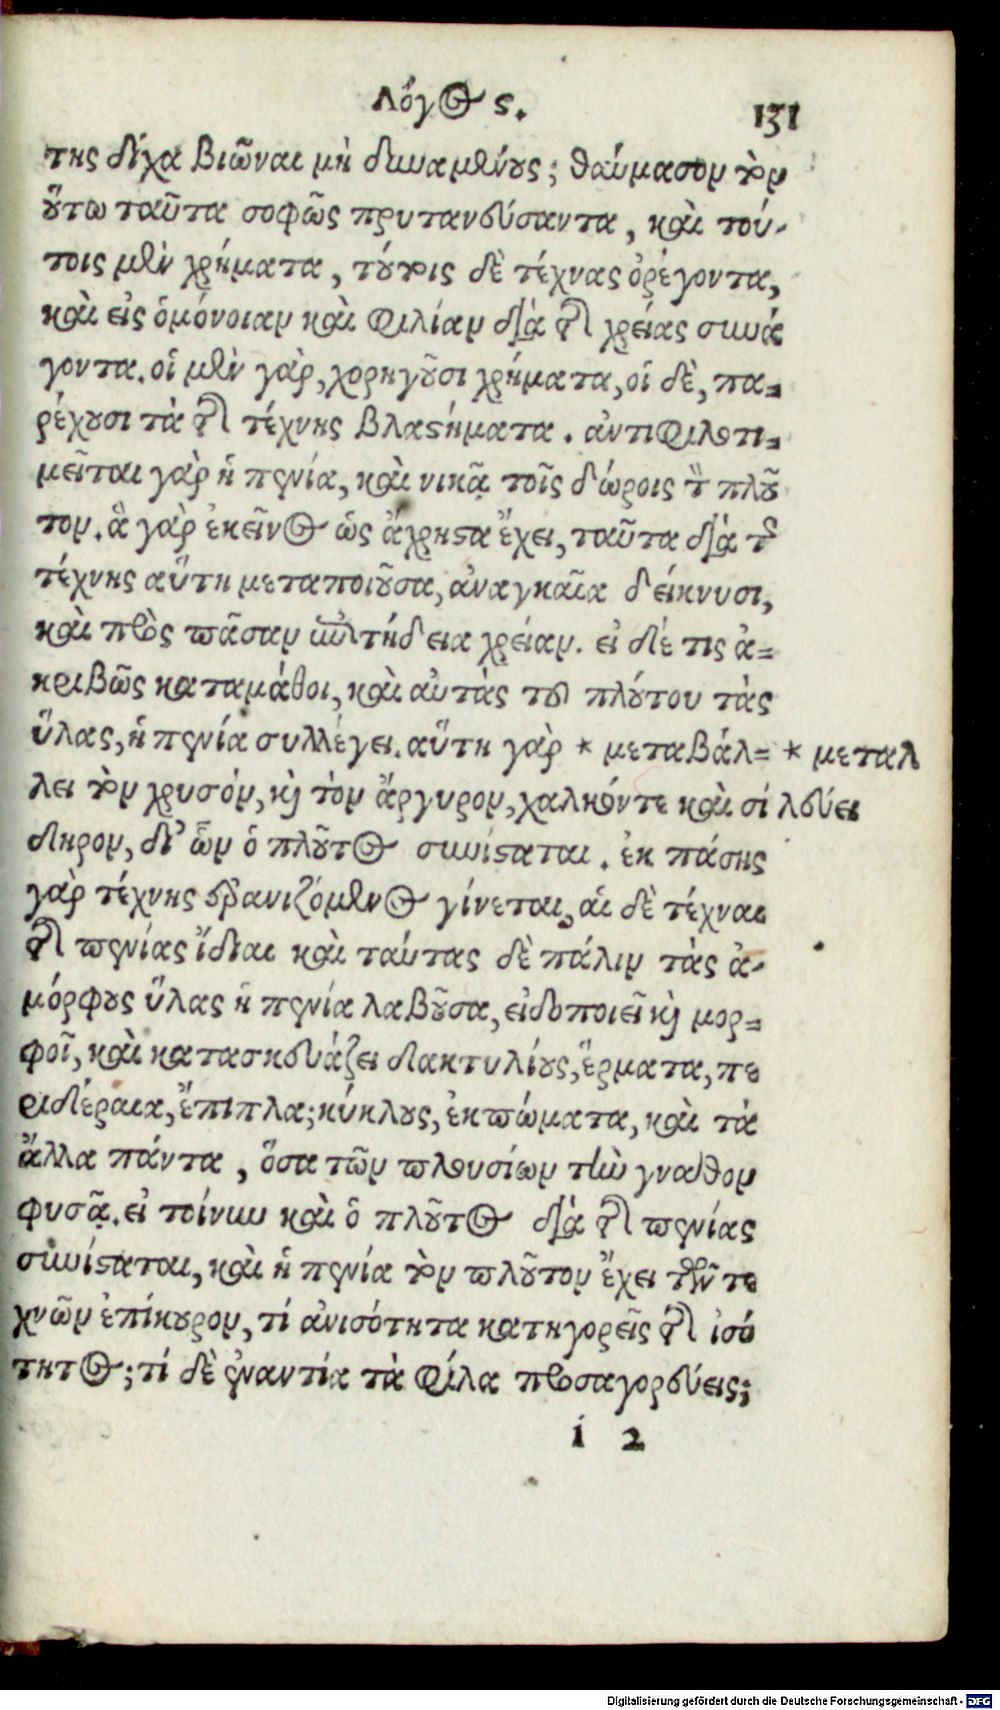 Λόγος ϛ. 131
της δίχα βιῶναι μὴ δυναμένους; θαύμασον τὸν
οὕτω ταῦτα σοφῶς πρυτανεύσαντα, καὶ τού-
τοις μὲν χρήματα, τούτοις δὲ τέχνας ὀρέγοντα,
καὶ εἰς ὁμόνοιαν καὶ φιλίαν διὰ τῆς χρείας συνά
γοντα. οἱ μὲν γὰρ, χορηγοῦσι χρήματα, οἱ δὲ, πα=
ρέχουσι τὰ τῆς τέχνης βλαστήματα. ἀντιφιλοτι=
μεῖται γὰρ ἡ πενία, καὶ νικᾷ τοῖς δώροις τὸν πλοῦ
τον. ἃ γὰρ ἐκεῖνος ὡς ἄχρηστα ἔχει, ταῦτα διὰ τῆς
τέχνης αὕτη μεταποιοῦσα, ἀναγκαῖα δείκνυσι,
καὶ πρὸς πᾶσαν ἐπιτήδεια χρείαν. εἰ δέ τις ἀ=
κριβῶς καταμάθοι, καὶ αὐτὰς τοῦ πλούτου τὰς
ὕλας, ἡ πενία συλλέγει. αὕτη γὰρ * μεταβάλ= * μεταλ
λει τὸν χρυσόν, καὶ τὸν ἄργυρον, χαλκόν τε καὶ σί λεύει
δηρον, δι᾽ ὧν ὁ πλοῦτος συνίσταται. ἐκ πάσης
γὰρ τέχνης ἐρανιζόμενος γίνεται, αἱ δὲ τέχναι
τῆς πενίας ἴδιαι καὶ ταύτας δὲ πάλιν τὰς ἀ-
μόρφους ὕλας ἡ πενία λαβοῦσα, εἰδοποιεῖ καὶ μορ=
φοῖ, καὶ κατασκευάζει δακτυλίους, ἕρματα, πε
ριδέραια, ἔπιπλα; κύκλους, ἐκπώματα, καὶ τὰ
ἄλλα πάντα, ὅσα τῶν πλουσίων τὴν γνάθον
φυσᾷ. εἰ τοίνυν καὶ ὁ πλοῦτος διὰ τῆς πενίας
συνίσταται, καὶ ἡ πενία τὸν πλοῦτον ἔχει τῶν τε
χνῶν ἐπίκουρον, τί ἀνισότητα κατηγορεῖς τῆς ἰσό
τητος; τί δὲ ἐναντία τὰ φίλα προσαγορεύεις;
i 2
Digitalisierung gefördert durch die Deutsche Forschungsgemeinschaft - DFG